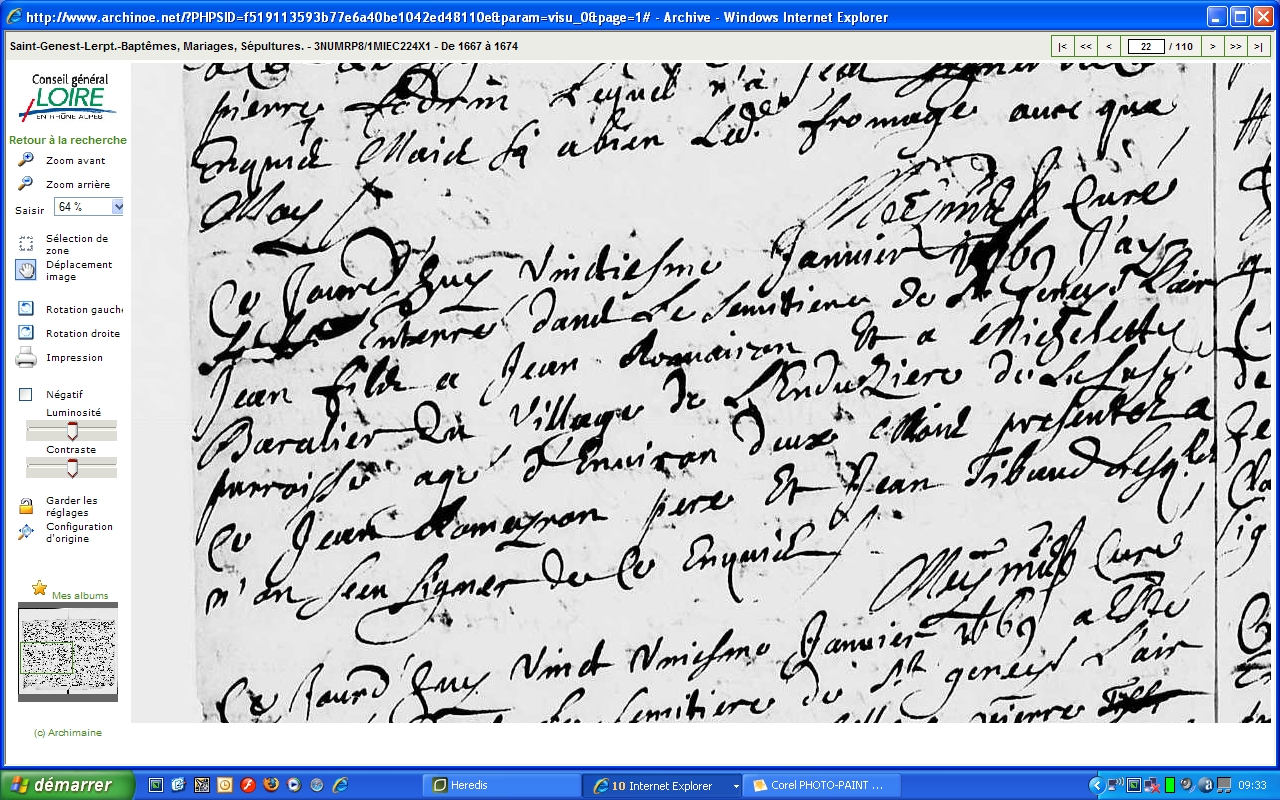 http://www.archinoe.net/?PHPSID=f519113593b77e6a40be1042ed48110e&param=visu_0&page=1# - Archive - Windows Internet Explorer
Saint-Genest-Lerpt.-Baptêmes, Mariages, Sépultures. - 3NUMRP8/1MIEC224X1 - De 1667 à 1674
|< << < 22 / 110 > >> >|
Conseil général
LOIRE
EN RHÔNE-ALPES
Retour à la recherche
Zoom avant
Zoom arrière
Saisir 64 %
Sélection de
zone
Déplacement
image
Rotation gauche
Rotation droite
Impression
Négatif
Luminosité
Contraste
Garder les
réglages
Configuration
d'origine
Mes albums
(c) Archimaine
pierre lequel n'a
Enquis Mais a bien led. fromage avec que
Moy
Curé
Ce Jourd'huy Vinctiesme Janvier 1669 J'ay
Enterré dans Le Semitiere de St genest l'air
Jean fils a Jean Romairon Et a Michelette
Baralier du Village de de
parroisse agé d'Environ deux Mois presents a
Ce Jean Romeyron pere Et Jean Tibaud Lesq.les
n'on sceu signer de Ce Enquis
Curé
Ce Jourd'huy Vinct Uniesme Janvier 1669 a Esté
Semitiere de St genest l'air
pierre
démarrer
Heredis
10 Internet Explorer
Corel PHOTO-PAINT ...
09:33